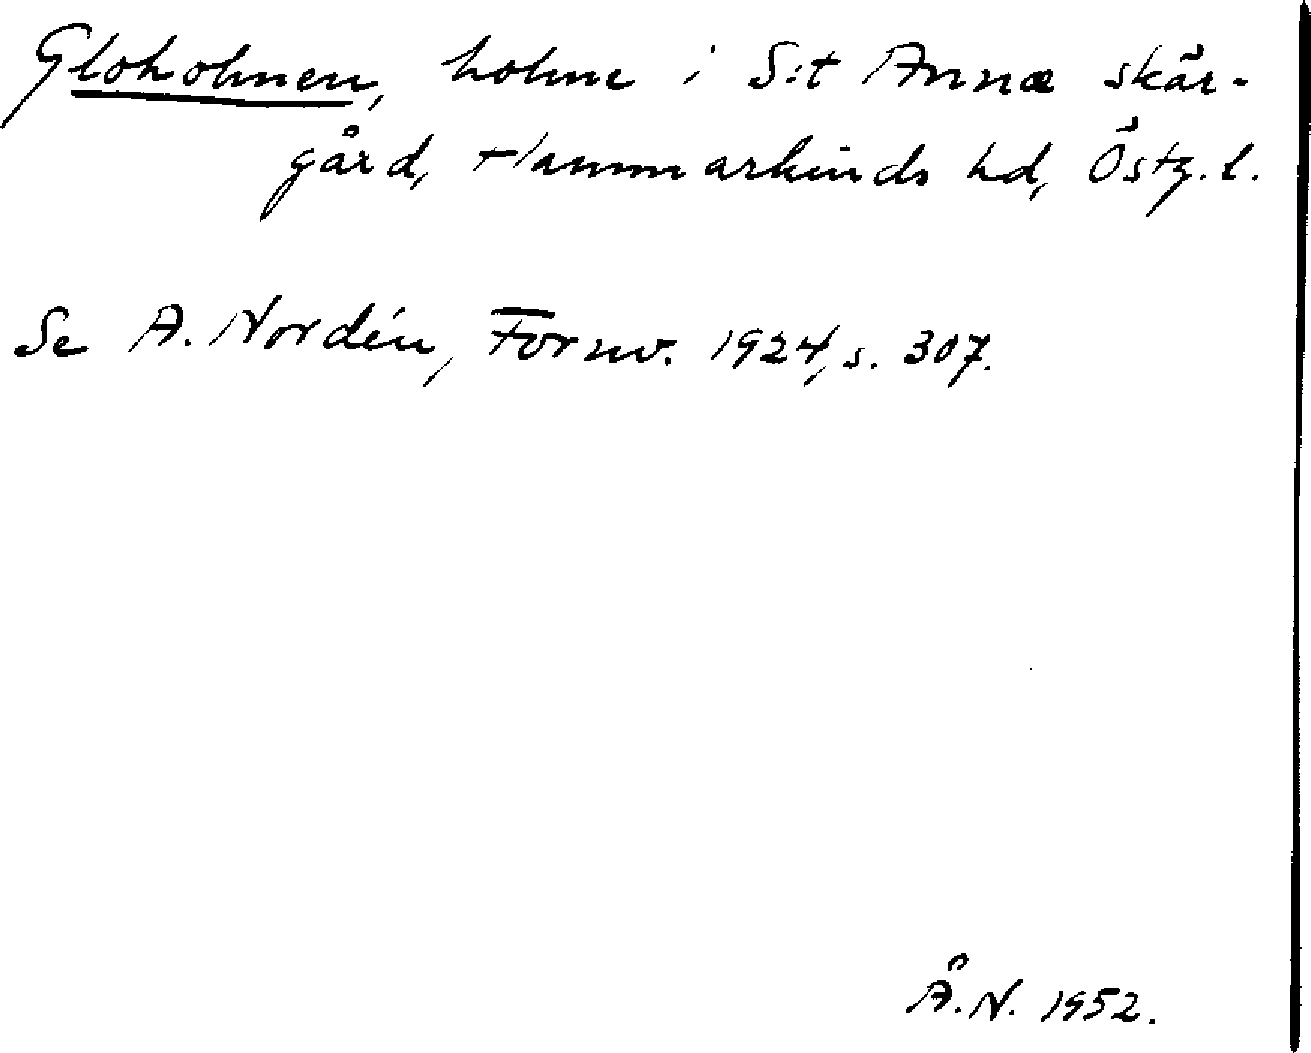 Gloholmen, holme i S:t Annæ skär-
gård, Hammarkinds hd, Östg. l.
Se A. Nordén, Fornv. 1924, s. 307.
Å. N. 1952.